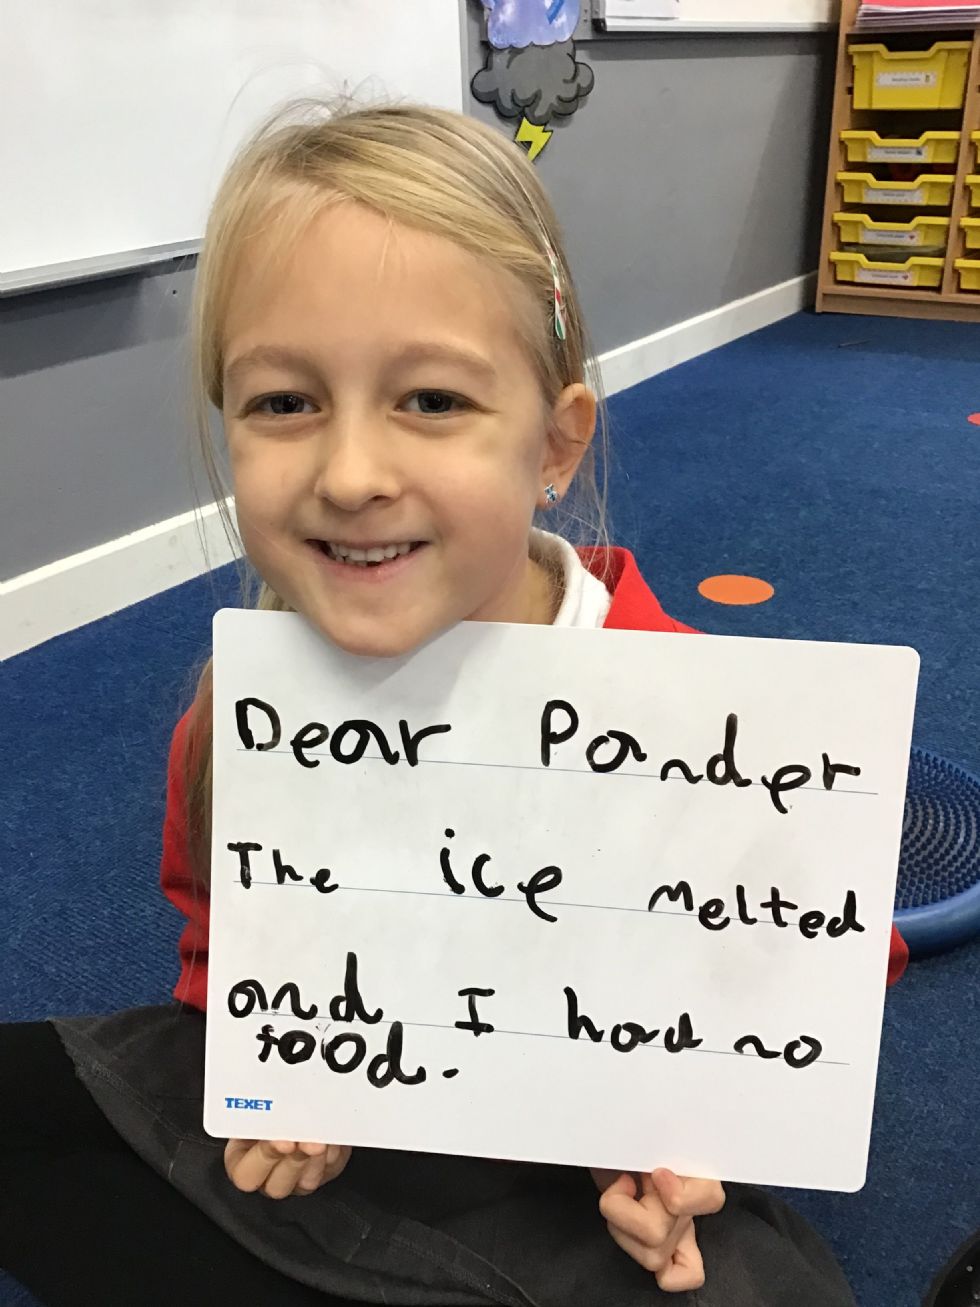 Dear Pander
The ice melted
and I had no
food.
TEXET